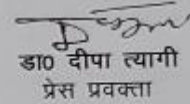 डा० दीपा त्यागी
प्रेस प्रवक्ता